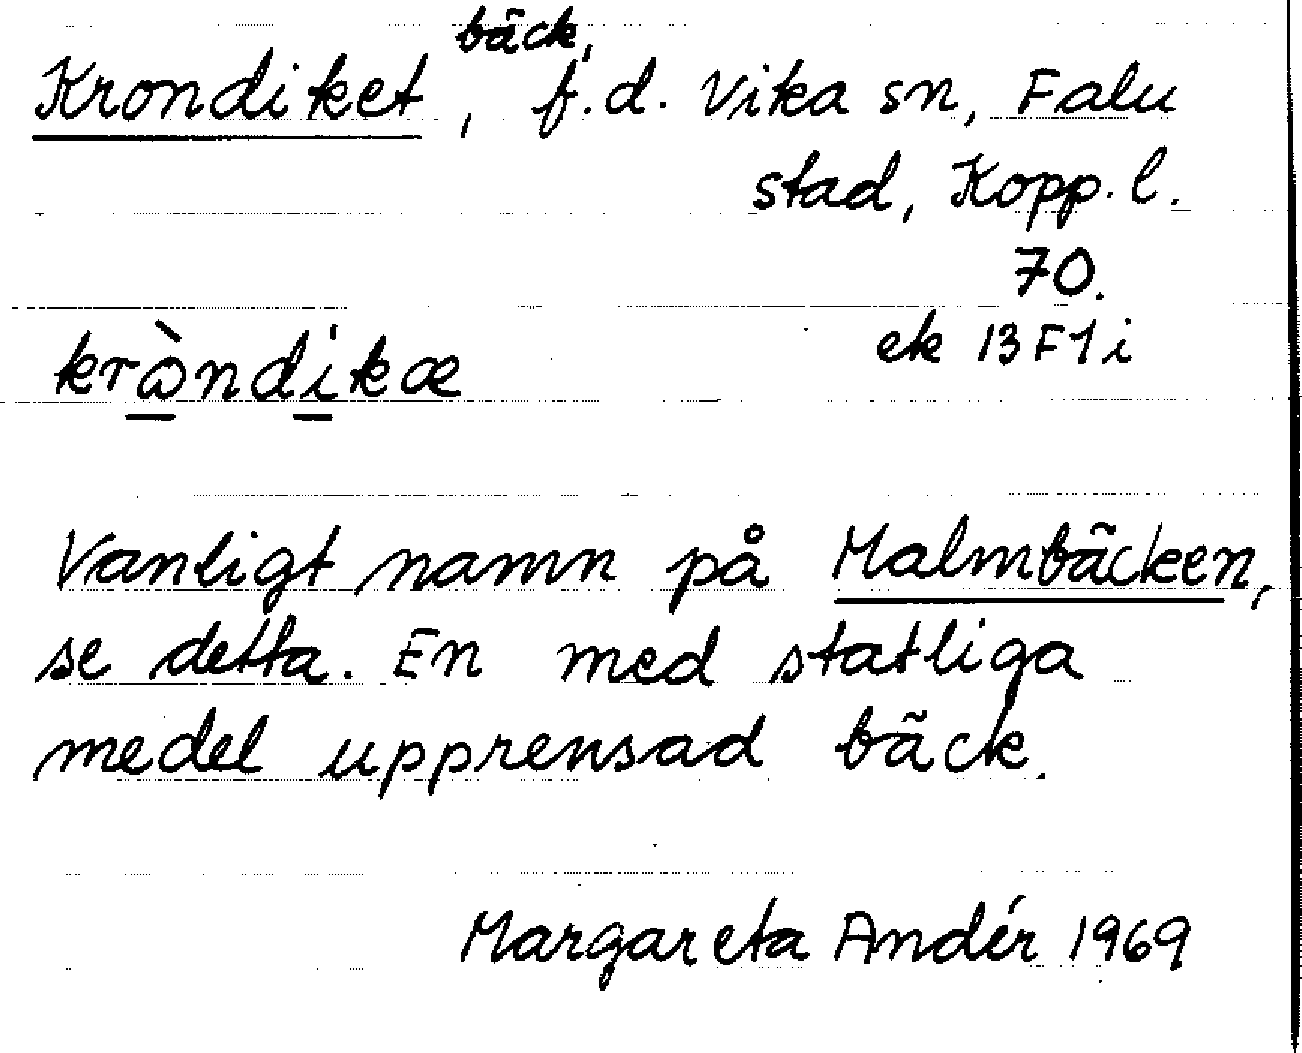 Krondiket, bäck, f.d. Vika sn, Falu
stad, Kopp. l.
70.
ek 13F1i
kròndikæ
Vanligt namn på Malmbäcken,
se detta. En med statliga
medel upprensad bäck.
Margareta Andér 1969